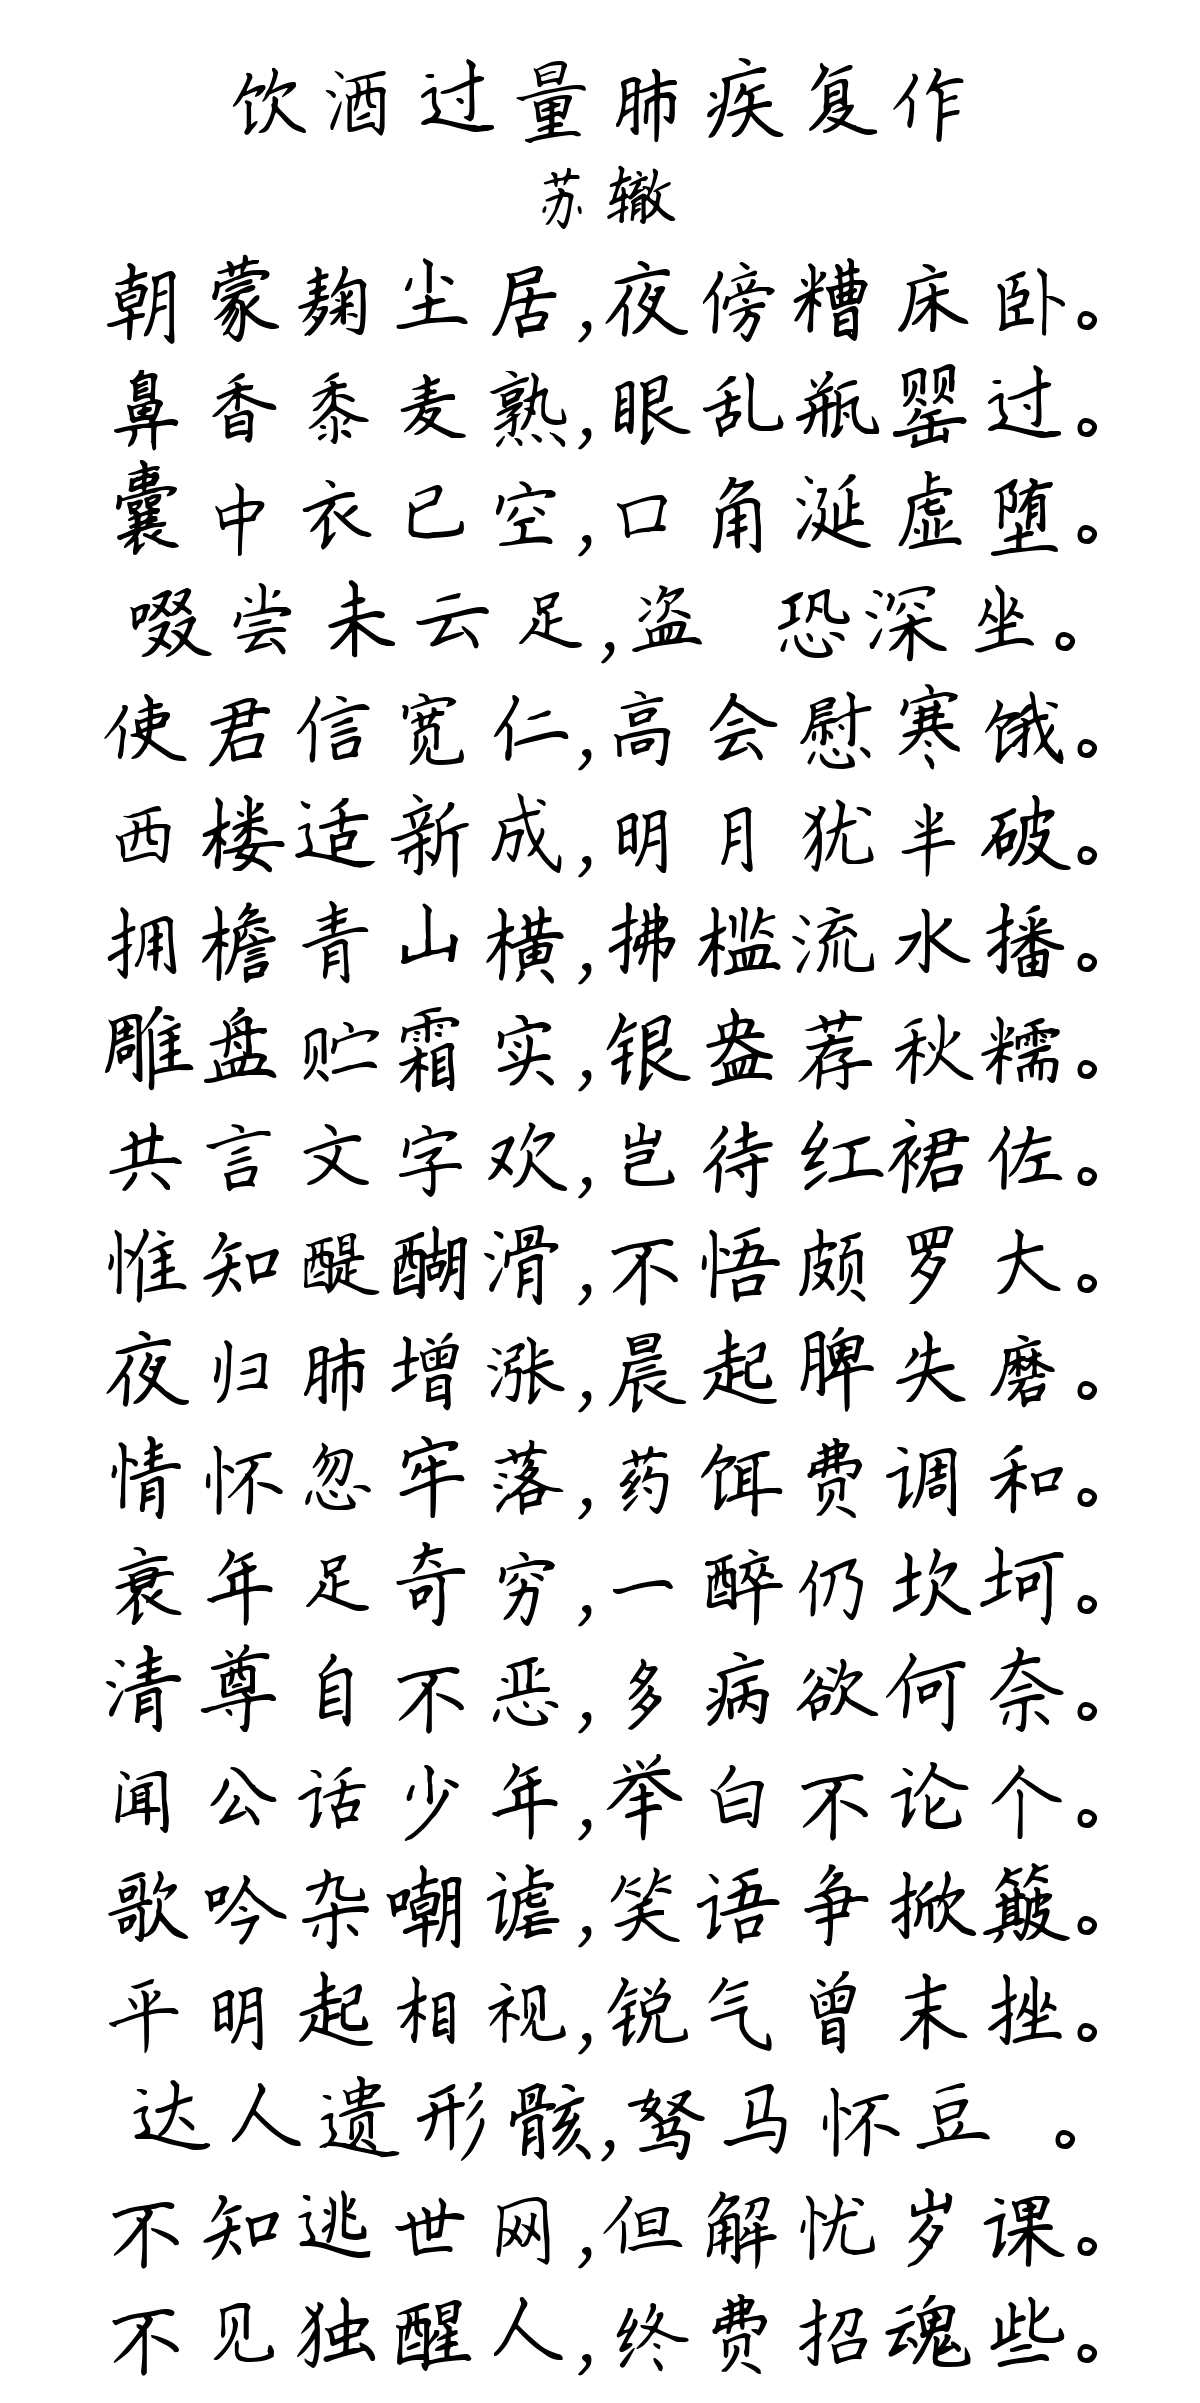 饮酒过量肺疾复作
苏辙
朝蒙麹尘居,夜傍糟床卧。
鼻香黍麦熟,眼乱瓶罂过。
囊中衣已空,口角涎虚堕。
啜尝未云足,盗 恐深坐。
使君信宽仁,高会慰寒饿。
西楼适新成,明月犹半破。
拥檐青山横,拂槛流水播。
雕盘贮霜实,银盎荐秋糯。
共言文字欢,岂待红裙佐。
惟知醍醐滑,不悟颇罗大。
夜归肺增涨,晨起脾失磨。
情怀忽牢落,药饵费调和。
衰年足奇穷,一醉仍坎坷。
清尊自不恶,多病欲何奈。
闻公话少年,举白不论个。
歌吟杂嘲谑,笑语争掀簸。
平明起相视,锐气曾末挫。
达人遗形骸,驽马怀豆 。
不知逃世网,但解忧岁课。
不见独醒人,终费招魂些。